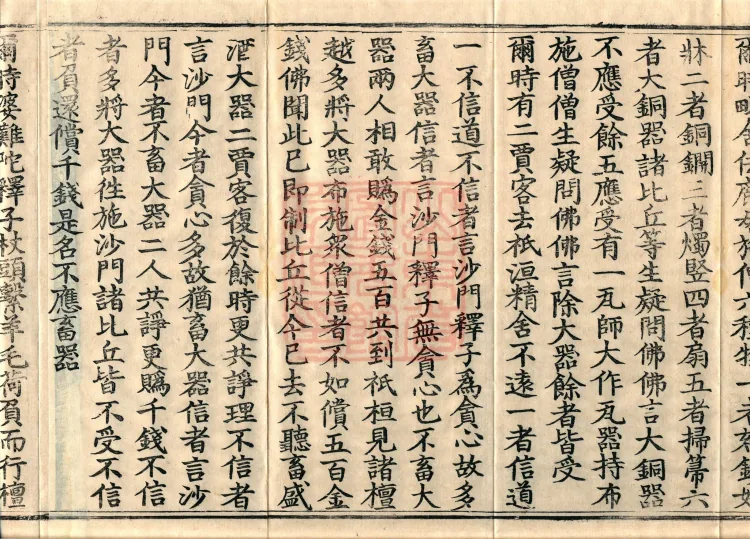 牀二者銅鐗三者燭豎四者扇五者掃箒六
者大銅器諸比丘等生疑問佛佛言大銅器
不應受餘五應受有一瓦師大作瓦器持布
施僧僧生疑問佛佛言除大器餘者皆受
爾時有二賈客去祇洹精舍不遠一者信道
一不信道不信者言沙門釋子爲貪心故多
畜大器信者言沙門釋子無貪心也不畜大
器兩人相敢賜金錢五百共到祇桓見諸檀
越多將大器布施衆僧信者不如償五百金
錢佛聞此已即制比丘從今已去不聽畜盛
酒大器二賈客復於餘時更共諍理不信者
言沙門今者貪心多故猶畜大器信者言沙
門今者不畜大器二人共諍更賜千錢不信
者多將大器徃施沙門諸比丘皆不受不信
者負還償千錢是名不應畜器
爾時婆難陀釋子杖頭繫羊毛荷負而行檀